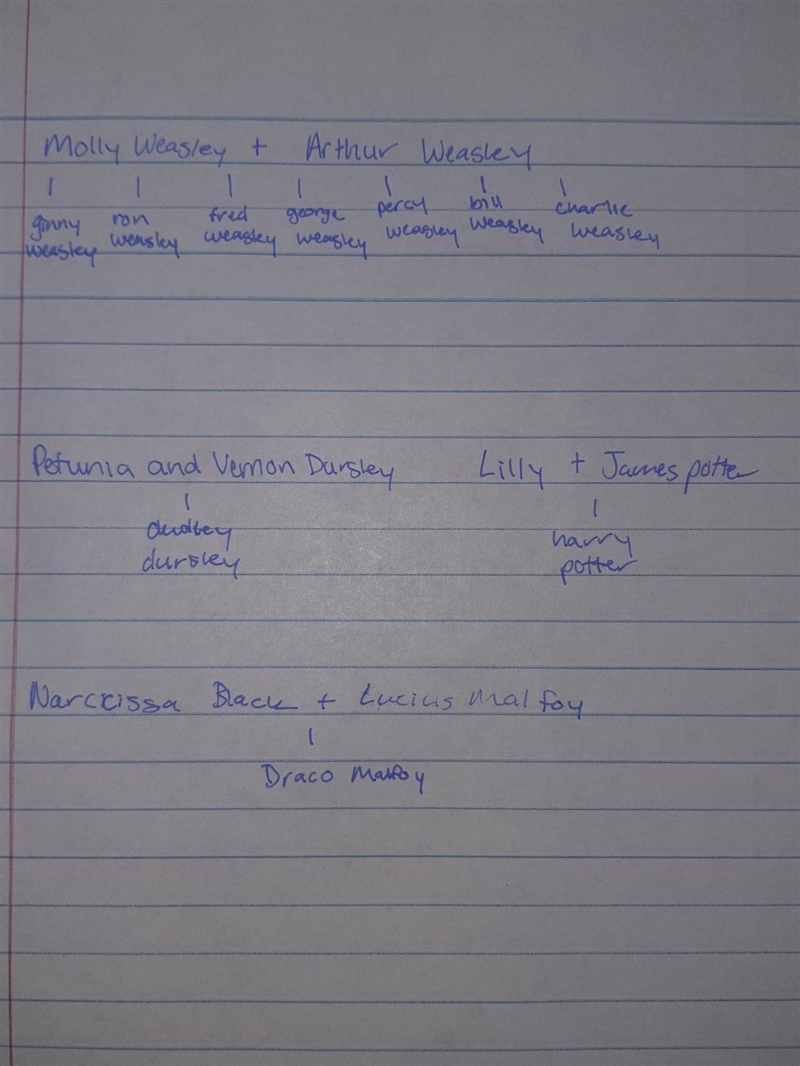 Molly Weasley + Arthur Weasley
ginny ron fred george percy bill charlie
weasley weasley weasley weasley weasley weasley weasley
Petunia and Vernon Dursley Lilly + James potter
dudley harry
dursley potter
Narcissa Black + Lucius Malfoy
Draco Malfoy